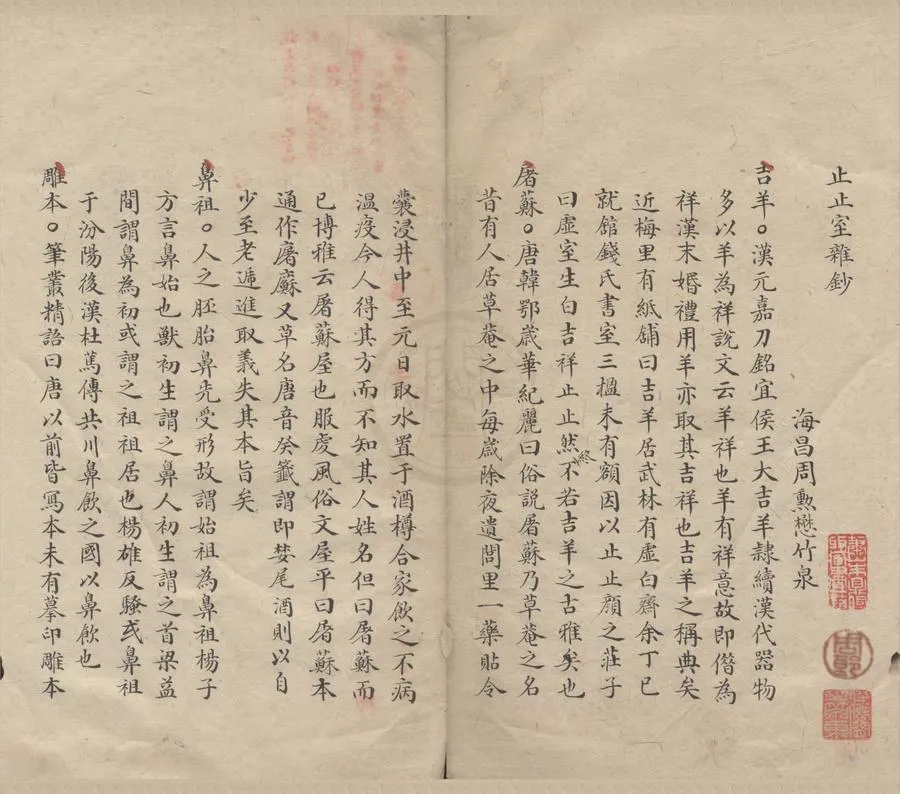 止止室雜鈔
海昌周勲懋竹泉
吉羊。漢元嘉刀銘宜侯王大吉羊隷續漢代器物
多以羊為祥說文云羊祥也羊有祥意故即僭為
祥漢末婚禮用羊亦取其吉祥也吉羊之稱典矣
近梅里有紙舖曰吉羊居武林有虛白齋余丁巳
就館錢氏書室三楹未有額因以止止顔之莊子
曰虛室生白吉祥止止然終不若吉羊之古雅矣也
屠蘇。唐韓鄂歲華紀麗曰俗説屠蘇乃草菴之名
昔有人居草菴之中每歲除夜遺閭里一藥貼令
囊浸井中至元日取水置于酒樽合家飲之不病
溫疫今人得其方而不知其人姓名但曰屠蘇而
已博雅云屠蘇屋也服虔風俗文屋平曰屠蘇本
通作廜㢝又草名唐音癸籤謂即婪尾酒則以自
少至老遞進取義失其本旨矣
鼻祖。人之胚胎鼻先受形故謂始祖為鼻祖楊子
方言鼻始也獸初生謂之鼻人初生謂之首梁益
間謂鼻為初或謂之祖祖居也楊雄反騷或鼻祖
于汾陽後漢杜篤傳共川鼻飲之國以鼻飲也
雕本。筆叢精語曰唐以前皆寫本未有摹印雕本